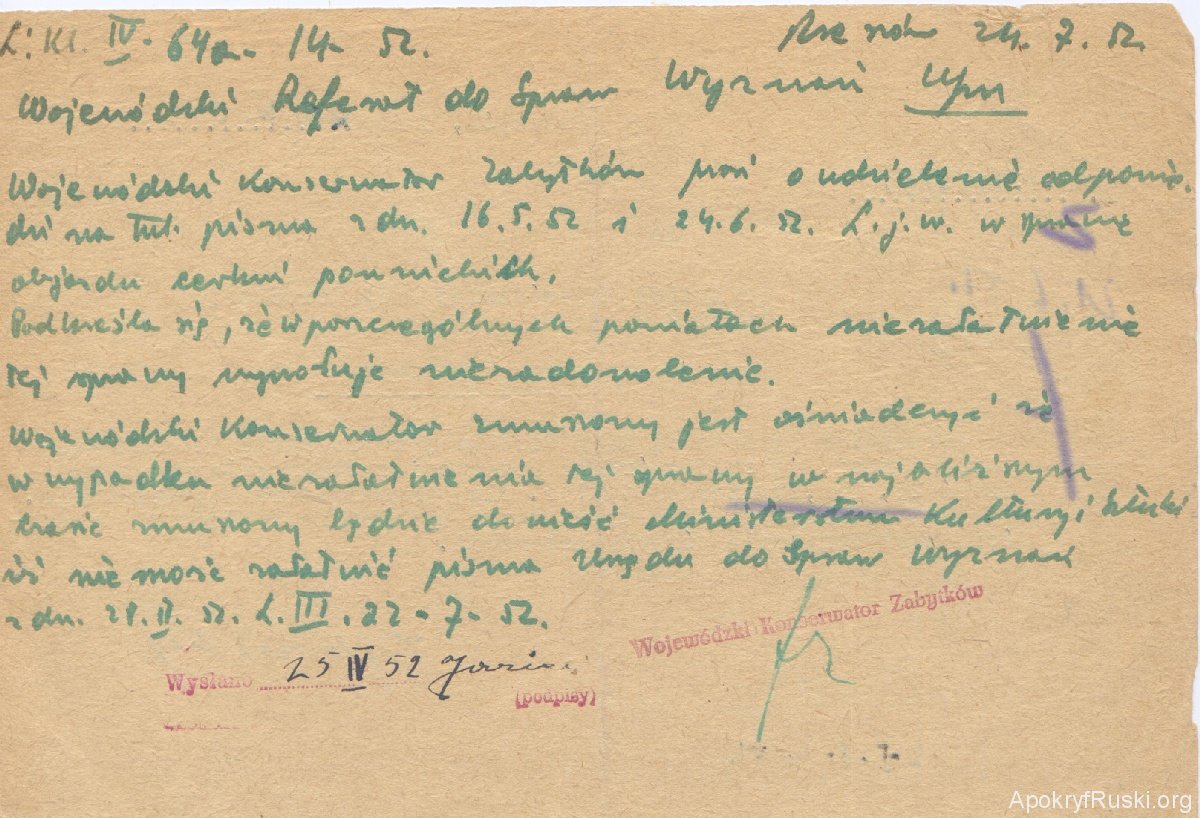 L: Kl. IV. 64a - 14 52. Rzeszów 24. 7. 52.
Wojewódzki Referat do Spraw Wyznań
Wojewódzki Konserwator Zabytków prosi o udzielenie odpowie-
dzi na tut. pisma z dn. 16.5.52 i 24.6.52. L.j.w. w sprawie
objazdu cerkwi powiackich.
Podkreśla się, że w poszczególnych powiatach niezałatwienie
tej sprawy wywołuje niezadowolenie.
Wojewódzki Konserwator zmuszony jest oświadczyć że
w wypadku niezałatwienia tej sprawy w najbliższym
czasie zmuszony będzie donieść Ministerstwu Kultury i Sztuki
iż nie może załatwić pisma Urzędu do Spraw Wyznań
z dn. 52. L. III. 22 - 7 - 52.
Wojewódzki Konserwator Zabytków
Wysłano 25 IV 52
(podpisy)
ApokryfRuski.org